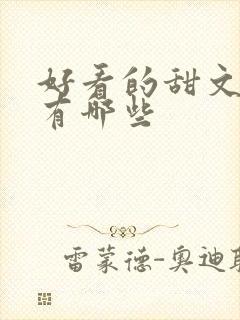 好看的甜文
有哪些
雷蒙德-奥迪